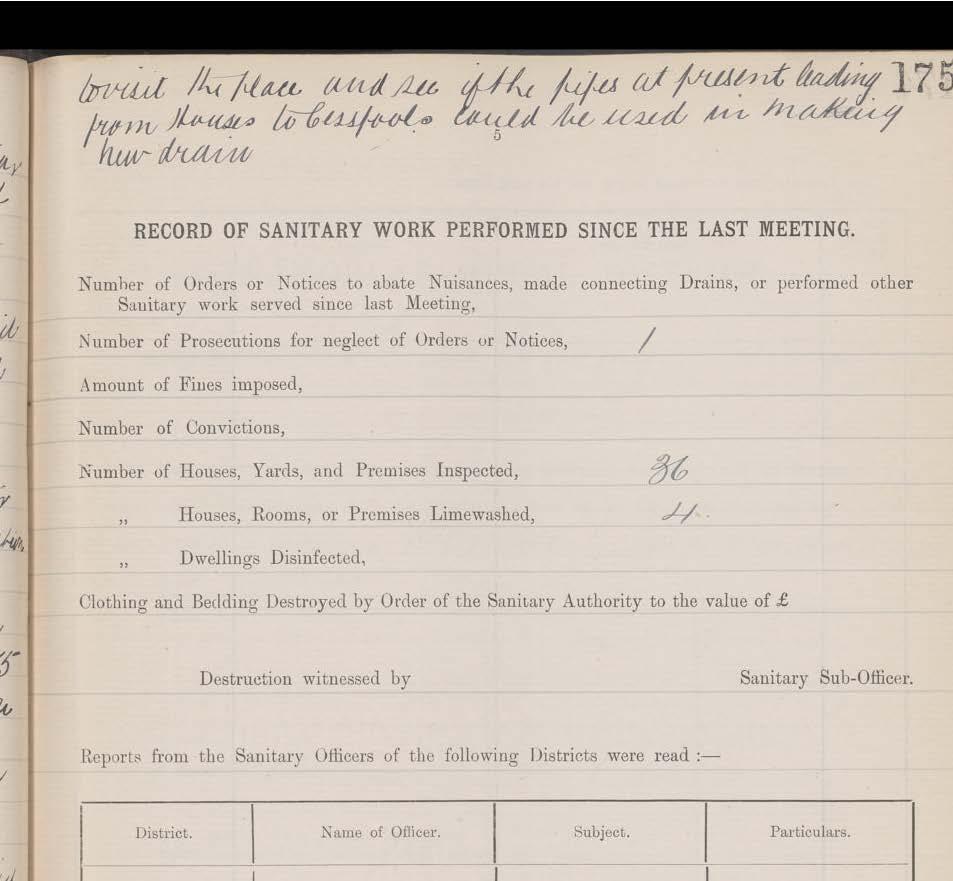 to visit the place and see if the pipes at present leading 175
from Houses to Cesspools could be used in making
5
new drain
RECORD OF SANITARY WORK PERFORMED SINCE THE LAST MEETING.
Number of Orders or Notices to abate Nuisances, made connecting Drains, or performed other
Sanitary work served since last Meeting,
Number of Prosecutions for neglect of Orders or Notices, 1
Amount of Fines imposed,
Number of Convictions,
Number of Houses, Yards, and Premises Inspected, 36
„ Houses, Rooms, or Premises Limewashed, 4
„ Dwellings Disinfected,
Clothing and Bedding Destroyed by Order of the Sanitary Authority to the value of £
Destruction witnessed by Sanitary Sub-Officer.
Reports from the Sanitary Officers of the following Districts were read :—
District. Name of Officer. Subject. Particulars.